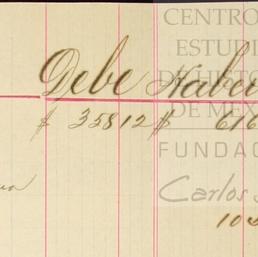 CENTRO
ESTUDI
DE HISTO
DE MÉX
Debe Haber
$ 35812 $ 616
FUNDAC
Carlos
10